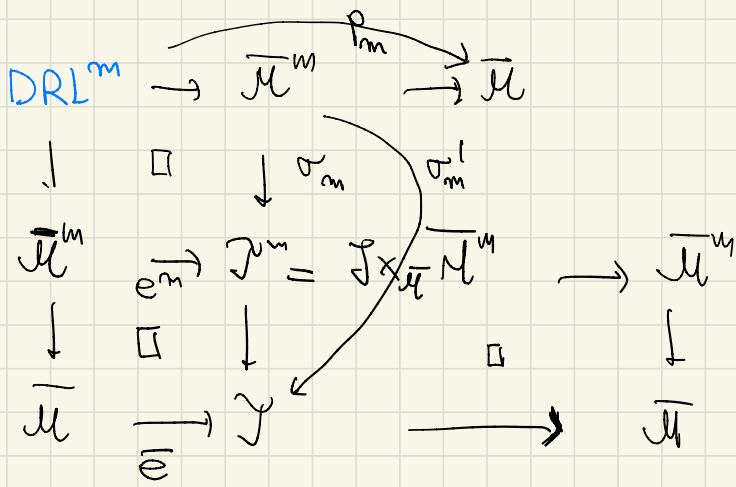 p_m
DRL^m → \bar{M}^m → \bar{M}
↓ □ ↓ σ_m σ'_m
\bar{M}^m \overrightarrow{e^m} J^m = J ×_{\bar{M}} \bar{M}^m → \bar{M}^m
↓ □ ↓ □ ↓
\bar{M} → \bar{e} J → \bar{M}